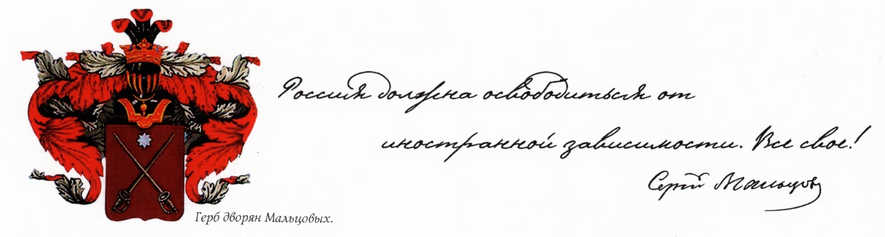 Россия должна освободиться от
иностранной зависимости. Все свое!
Сергей Мальцов
Герб дворян Мальцовых.